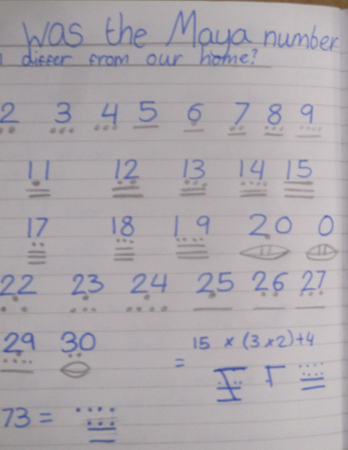 was the Maya number
differ from our home?
2 3 4 5 6 7 8 9
11 12 13 14 15
17 18 19 20 0
22 23 24 25 26 27
29 30
= 15 × (3×2)+4
73 =